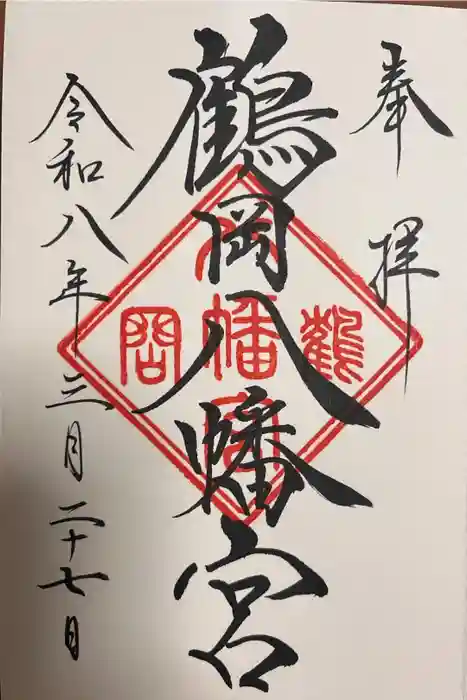 奉拝
鶴岡八幡宮
鶴岡八幡宮
令和八年三月二十七日